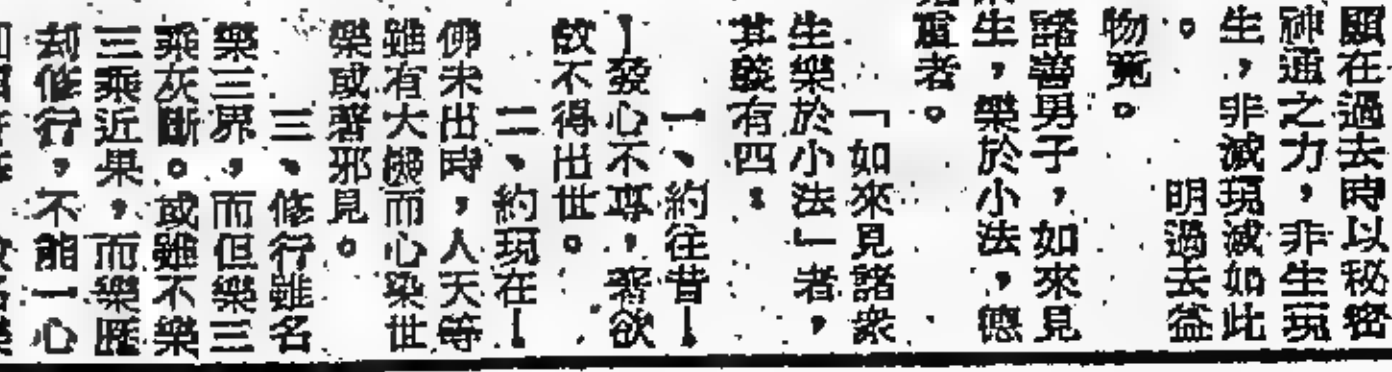 顯在過去時以秘密
神通之力，非生現
生，非滅現滅如此
。　明過去益
物竟。
諸善男子，如來見
生，樂於小法，德
重者。
「如來見諸衆
生樂於小法」者，
其義有四：
一、約往昔—
】發心不專，著欲
故不得出世。
二、約現在—
佛未出時，人天等
雖有大機而心染世
樂或著邪見。
三、修行雖名
樂三界，而但樂三
乘灰斷。或雖不樂
三乘近果，而樂歷
劫修行，不能一心